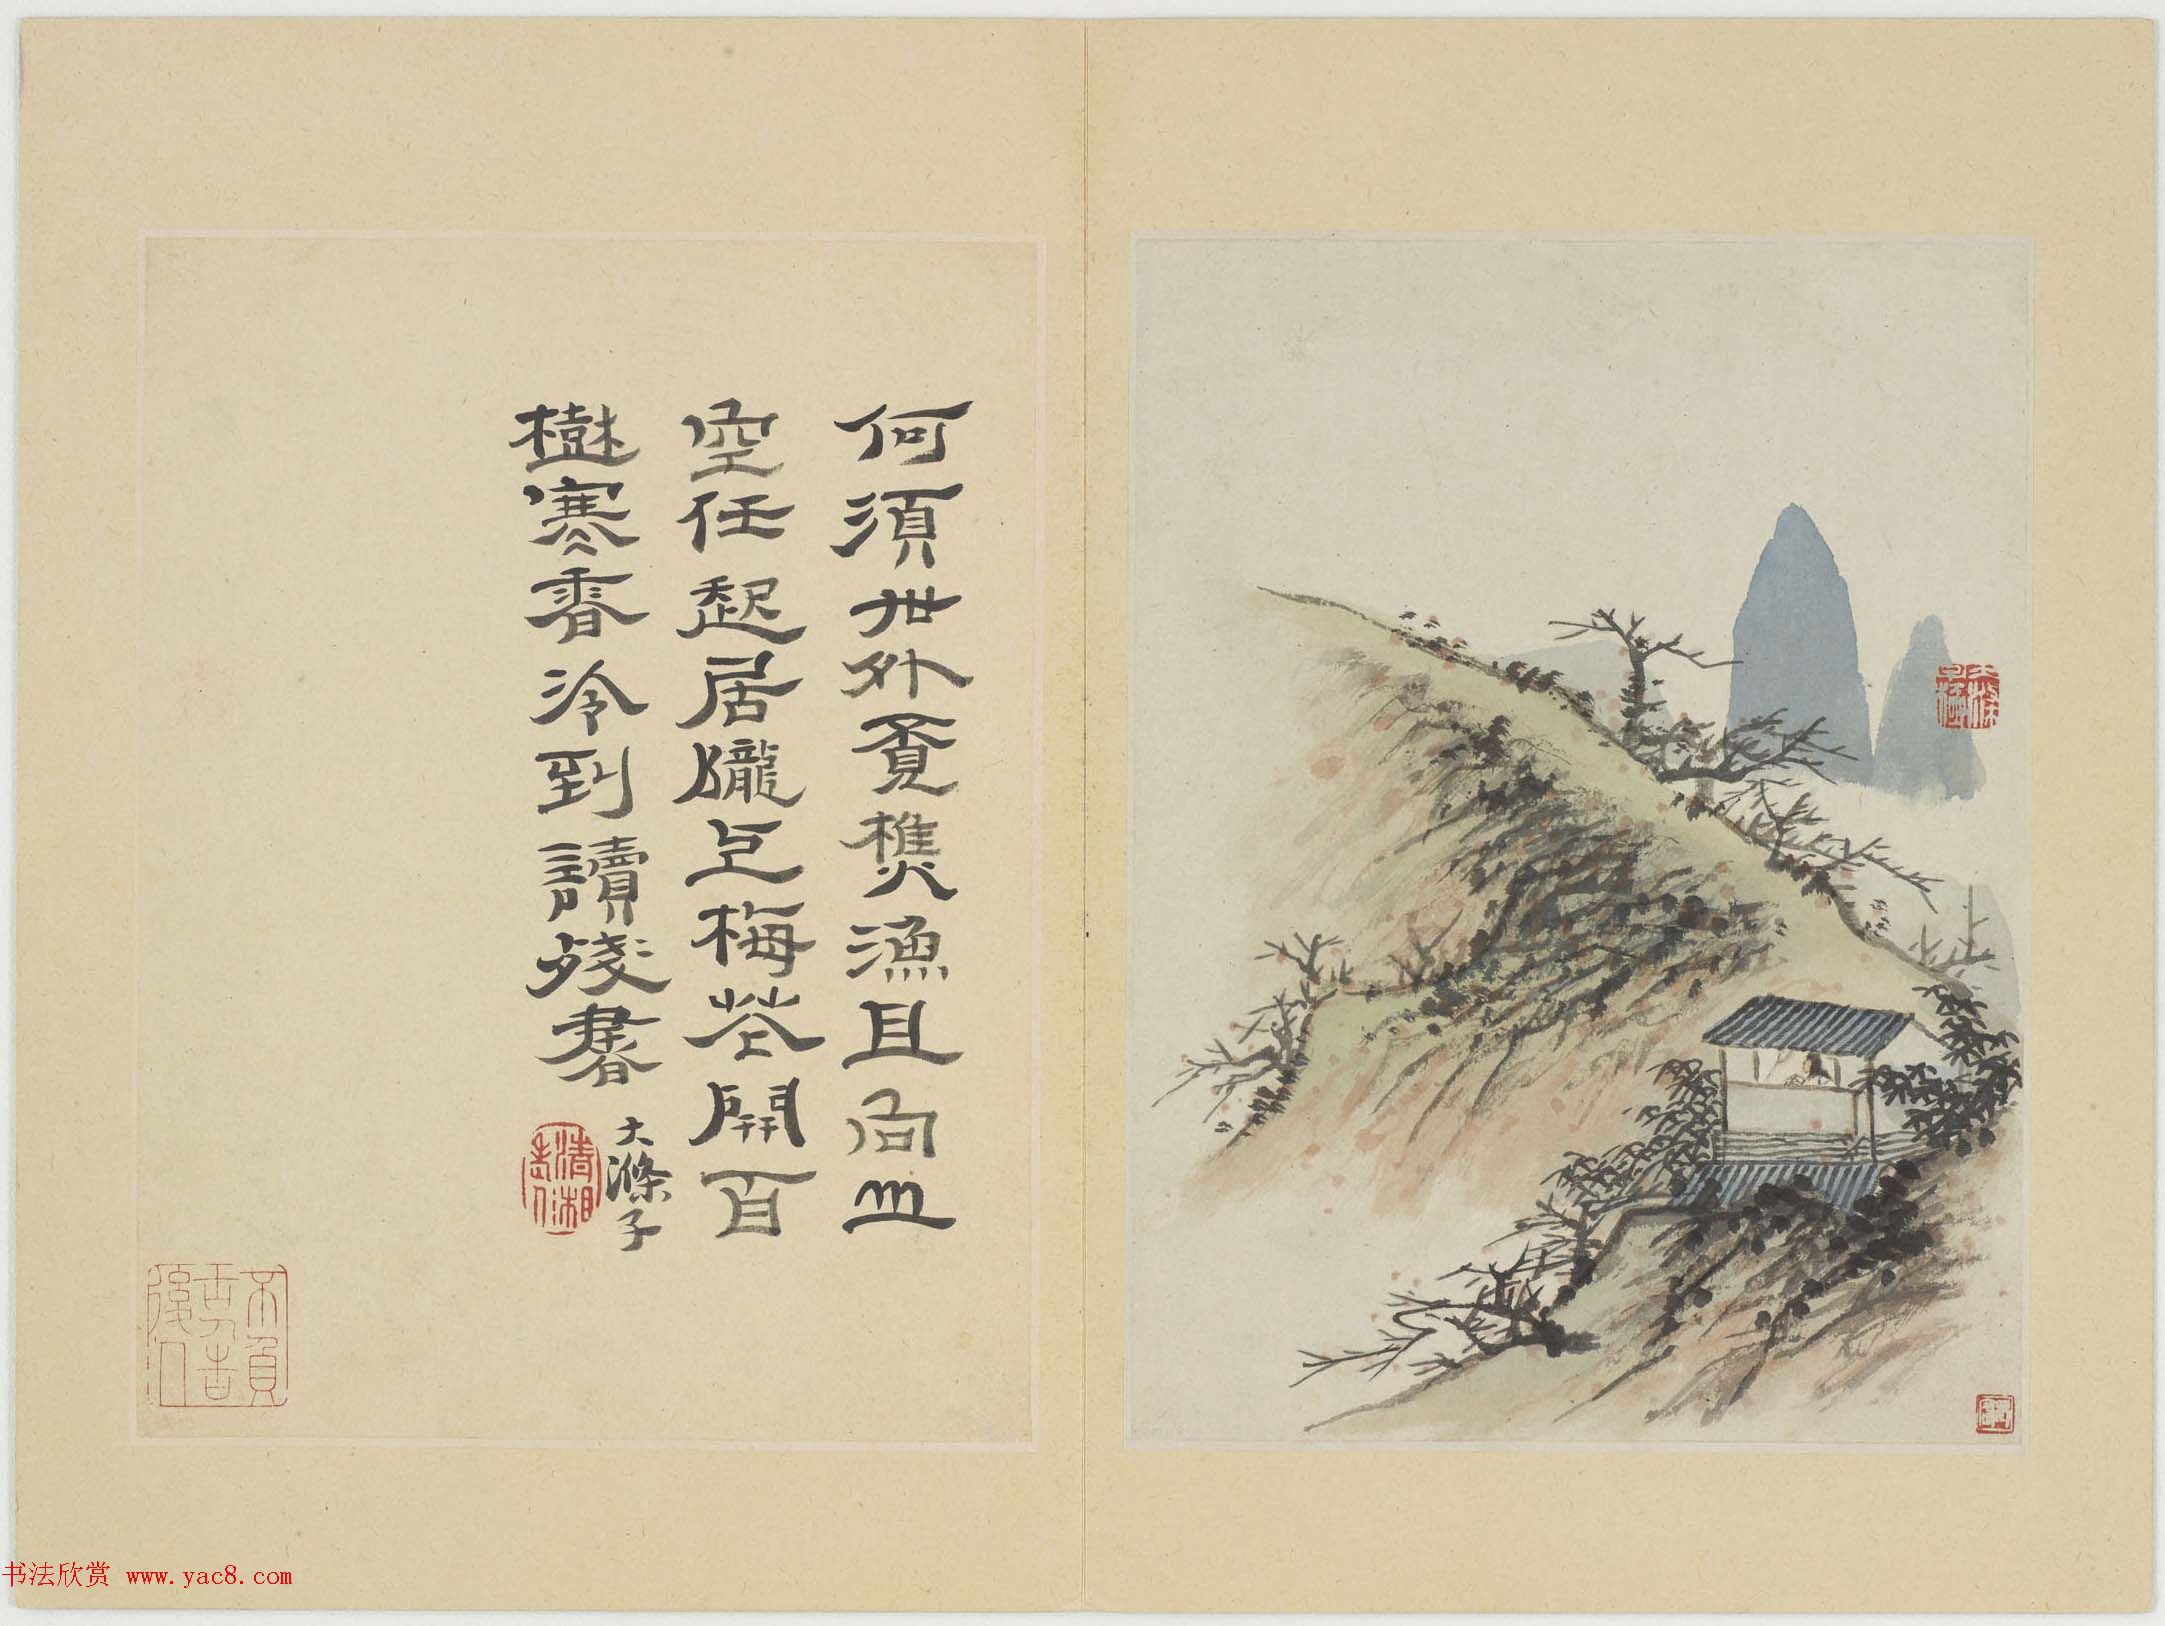 何須世外覓樵漁且向山
空任起居隴上梅花開百
樹寒香冷到讀殘書
大滌子
清湘老人
不負古人告後人
书法欣赏 www.yac8.com